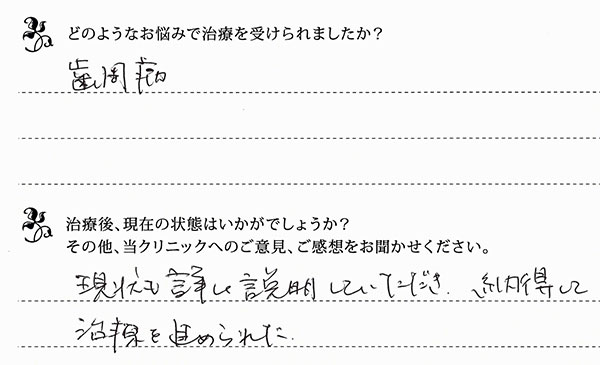 どのようなお悩みで治療を受けられましたか？
歯周病
治療後、現在の状態はいかがでしょうか？
その他、当クリニックへのご意見、ご感想をお聞かせください。
現状も詳しく説明していただき、納得して
治療を進められた。